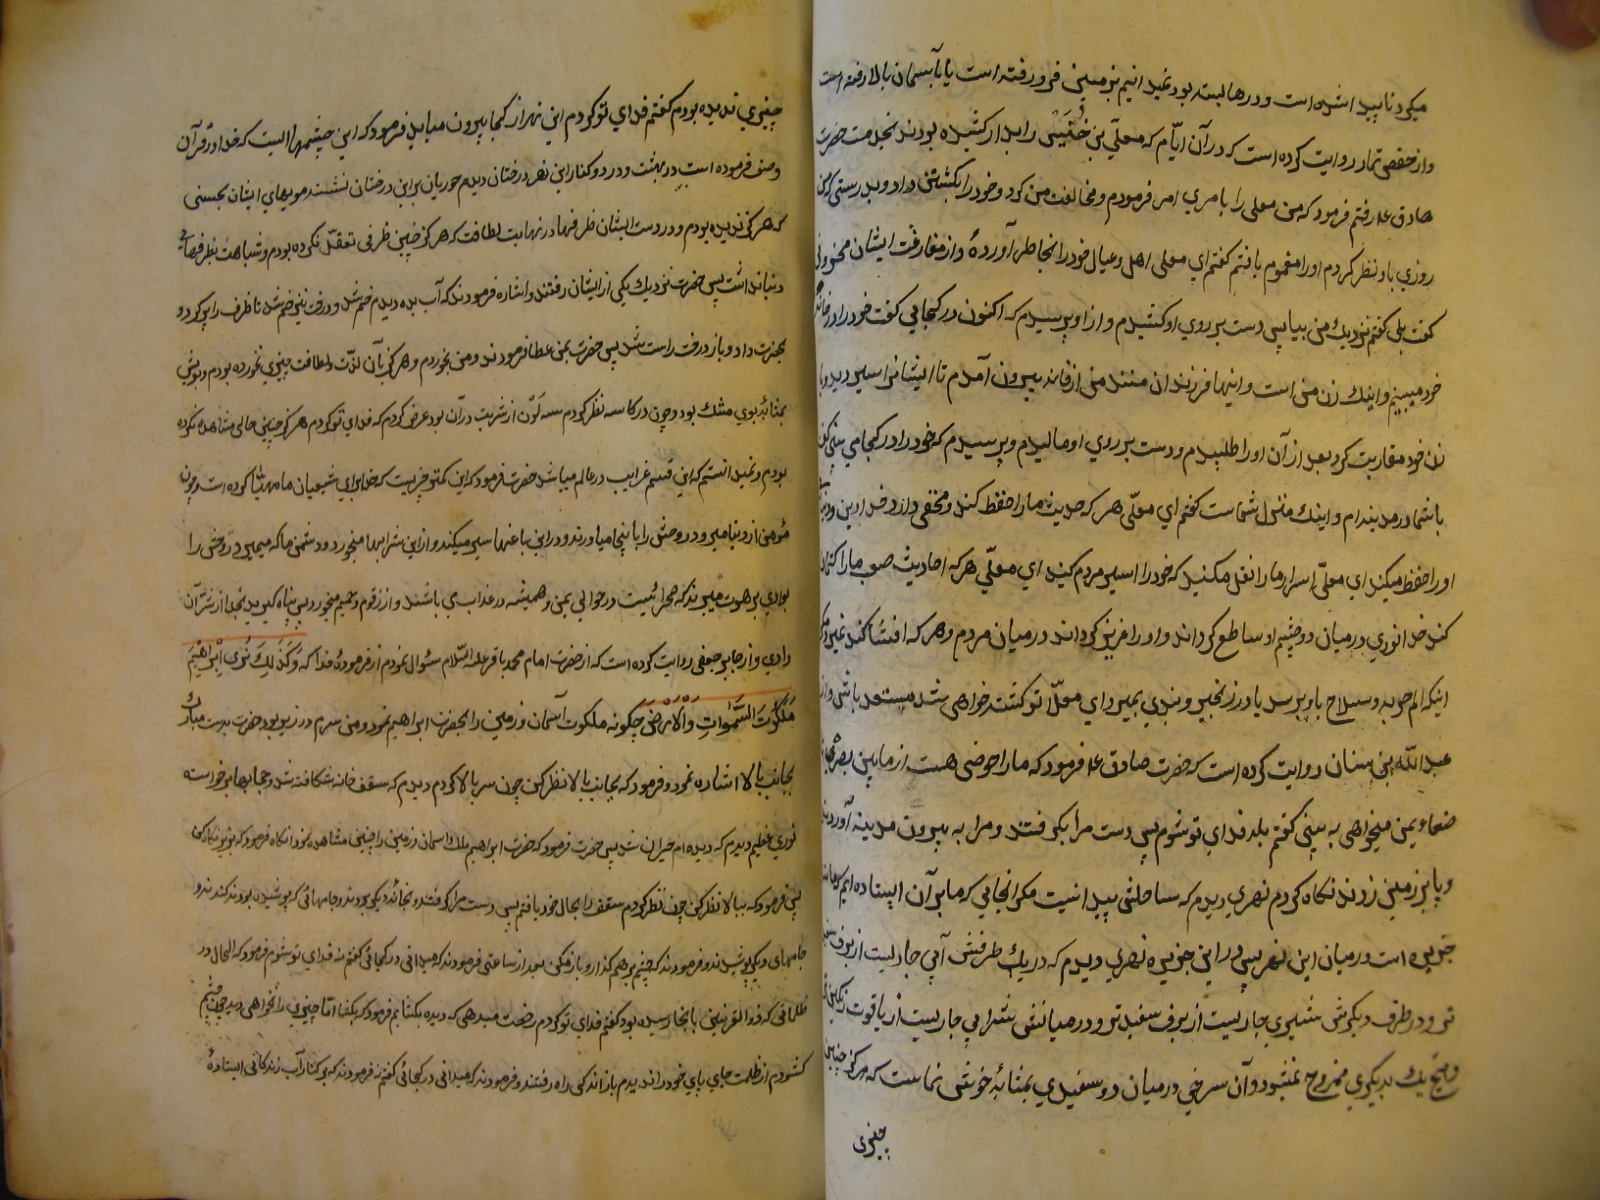 میکرد ناپیدا شده است و درها بسته بود نمیدانیم بزمین فرو رفته است یا بآسمان بالا رفته است
و از حفص تمار روایت کرده است که در آن ایّام که معلّی بن خُنَیْس را بدار کشیده بودند بخدمت حضرت
صادق ع رفتم فرمود که من معلی را بامری امر فرمودم و مخالفت من کرد و خود را بکشتن داد و بدرستی که من
روزی باو نظر کردم او را مغموم یافتم گفتم ای معلی اهل و عیال خود را بخاطر آوردهٔ و از مفارقت ایشان محزونی
گفت بلی گفتم نزدیك من بیا پس دست بر روی او کشیدم و از او پرسیدم که اکنون در کجایی گفت خود را در خانهٔ
خود میبینم و اینك زن من است و اینها فرزندان منند من از خانه بیرون آمدم تا ایشانرا سیر دید و با
زن خود مقاربت کرد بعد از آن او را طلبیدم و دست بر روی او مالیدم و پرسیدم که خود را در کجا می بینی گفت
با شما در مدینه‌ام و اینك منزل شماست گفتم ای معلّی هر که حدیث ما را حفظ کند و مخفی دارد خدا دین و دنیای
او را حفظ میکند ای معلّی اسرار ما را نقل مکنید که خود را اسیر مردم کنید ای معلّی هر که احادیث صعب ما را کتمان
کند خدا نوری در میان دو چشم او ساطع گرداند و او را عزیز گرداند در میان مردم و هر که افشا کند نمیرد مگر
اینکه الم حربه و سلاح باو برسد یا در زنجیر و بندی بمیرد ای معلّا تو کشته خواهی شد مستعد باش و از
عبدالله بن سنان روایت کرده است که حضرت صادق ع فرمود که ما را حوضی هست از مابین بصره تا
صنعاء یمن میخواهی به بینی گفتم بلد فدای تو شوم پس دست مرا بگرفتند و مرا به بیرون مدینه آوردند
و پا بر زمین زدند نگاه کردم نهری دیدم که ساحلش پیدا نیست مگر انجایی که ما بر آن ایستاده ایم که مانند
جزیره است در میان این نهر پس در این جزیره نهری دیدم که در یك طرفش آبی جاریست از برف سفید
تر و در طرف دیگرش شیری جاریست از برف سفید تر و در میانش شرابی جاریست از یاقوت رنگین تر
و هیچ یك بدیگری ممزوج نمیشود و آن سرخی در میان دو سفیدی بمثابهٔ خوش نماست که هرگز چنین
چیزی
چیزی ندیده بودم گفتم فدای تو گردم این نهر از کجا بیرون میاید فرمود که این چشمها ایست که خدا در قرآن
وصف فرموده است در بهشت و در دو کنار این نهر درختان دیدم حوریان بر این درختان نشسته مویهای ایشان بحسنی
که هرگز ندیده بودم و در دست ایشان ظرفها در نهایت لطافت که هرگز چنین ظرفی تعقّل نکرده بودم و شباهت بظرفهای
دنیا نداشت پس حضرت نزدیك یکی از ایشان رفتند و اشاره فرمودند که آب بده دیدم خم شد و درخت نیز خم شد تا ظرف را پر کرد و
بحضرت داد و باز درخت راست شد پس حضرت بمن عطا فرمودند و من بخوردم و هرگز بآن لذّت و لطافت چیزی نخورده بودم و بویش
بمثابهٔ بوی مشك بود و چون در کاسه نظر کردم سه لَوْن از شربت در آن بود عرض کردم که فدای تو گردم هرگز چنین حالی مشاهده نکرده
بودم و نمیدانستم که این قسم غرایب در عالم میباشد حضرت فرمود که این کمتر چیزیست که خدا برای شیعیان ما مهیّا کرده است و چون
مؤمن از دنیا میرود روحش را باینجا میاورند و در این باغها سیر میکند و از این شرابها میخورد و دشمن ما که میمیرد روحش را
بوادی برهوت میبرند که صحرائیست در حوالی یمن و همیشه در عذاب می باشند و از زقوم و حمیم میخورد پس پناه گیرید بخدا از شرّ آن
وادی و از جابر جعفی روایت کرده است که از حضرت امام محمد باقر علیه السّلام سئوال نمودم از فرمودهٔ خدا که وَکَذٰلِكَ نُرِی اِبْرٰاهِیْمَ
مَلَکُوتَ السَّمٰوٰاتِ وَالْاَرْضِ چگونه ملکوت آسمان و زمین را بحضرت ابراهیم نمود و من سرم در زیر بود حضرت بدست مبارك
بجانب بالا اشاره نمود و فرمود که بجانب بالا نظر کن چون سر بالا کردم دیدم که سقف خانه شکافته شد و حجابها برخواسته
نوری عظیم دیدم که دیده ام حیران شد پس حضرت فرمود که حضرت ابراهیم ملك آسمان و زمین را چنین مشاهده نمود انگاه فرمود که بزیر نگاه کن
پس فرمود که ببالا نظر کن چون نظر کردم سقف را بحال خود یافتم پس دست مرا گرفتند و بخانهٔ دیگر بودند و جامهائی که پوشیده بودند کندند و
جامهای دیگر پوشیدند و فرمودند که چشم بر هم گذار و باز مکن بعد از ساعتی فرمودند که میدانی در کجائی گفتم نه فدای تو شوم فرمود که الحال در
ظلماتی که ذوالقرنین بانجا رسیده بود گفتم فدای تو گردم رخصت میدهی که دیده بگشایم فرمود که بگشا اما چیزی را نخواهی دید چون چشم
گشودم از ظلمت جای پای خود را ندیدم باز اندکی راه رفتند و فرمودند که میدانی در کجائی گفتم نه فرمودند که بر کنار آب زندگانی ایستادهٔ